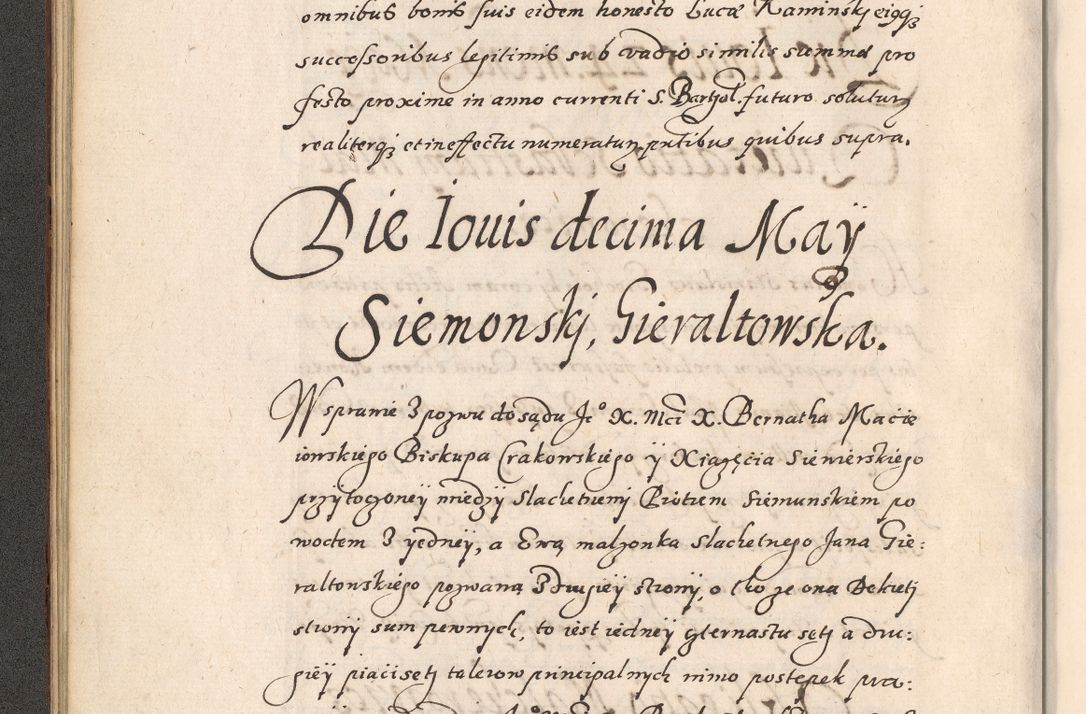 omnibus bonis suis eidem honesto Lucæ Kaminskj eiqqȝ
successoribus legitimis sub vadio similis summæ pro
festo proxime in anno currenti S. Bartol. futuro soluturȝ
realiterqȝ et in effectu numeraturȝ pntibus quibus supra.
Die Iouis decima Maÿ
Siemonskj, Gieraltowska.
W sprawie z pozwu do sądu Jº X. Mci X. Bernatha Macie
iowskiego Biskupa Crakowskiego y Xiązęcia Siewierskiego
przÿtoczoneÿ miedzÿ slachetnemj Piotrem Siemunskiem po
wodem z yedneÿ, a Ewą malzonka slachetnego Jana Gie:
raltowskiego pozwaną z drugieÿ stronÿ, o tho ze ona Dekretj
stronÿ sum pewnych, to iest iedneÿ czternastu setj a dru:
gieÿ piacisetj talerow principalnych mimo postepek pra: